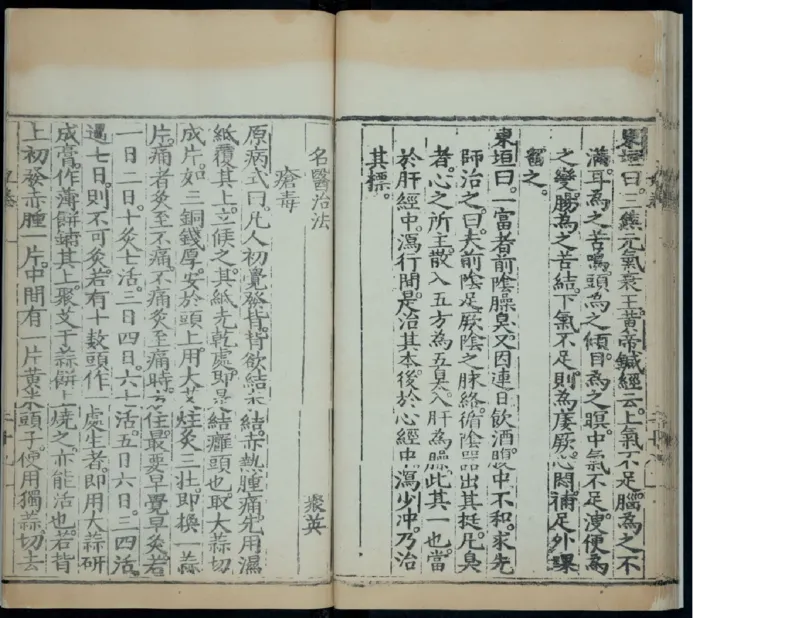 東垣曰。三焦元氣衰王。黃帝鍼經云。上氣不足。腦為之不
滿。耳為之苦鳴。頭為之傾。目為之瞑。中氣不足。溲便為
之變。腸為之苦結。下氣不足。則為痿厥心悶。補足外踝
留之。
東垣曰。一富者前陰臊臭。又因連日飲酒。腹中不和。求先
師治之。曰。夫前陰足厥陰之脉絡循陰器出其挺。凡臭
者。心之所主。散入五方為五臭。入肝為臊。此其一也。當
於肝經中瀉行間。是治其本。後於心經中瀉少冲。乃治
其標。
名醫治法 聚英
瘡毒
原病式曰。凡人初覺發背。背欲結未結。赤熱腫痛。先用濕
紙覆其上。立候之。其紙先乾處。即是結癰頭也。取大蒜切
成片。如三銅錢厚。安於頭上。用大艾炷灸三壯。即換一蒜
片。痛者灸至不痛。不痛灸至痛時方住。最要早覺早灸。若
一日二日。十灸十活。三日四日。六七活。五日六日。三四活。
過七日。則不可灸。若有十數頭作一處生者。即用大蒜研
成膏。作薄餅鋪其上。聚艾于蒜餅上燒之。亦能活也。若背
上初發赤腫一片。中間有一片黃米頭子。便用獨蒜切去